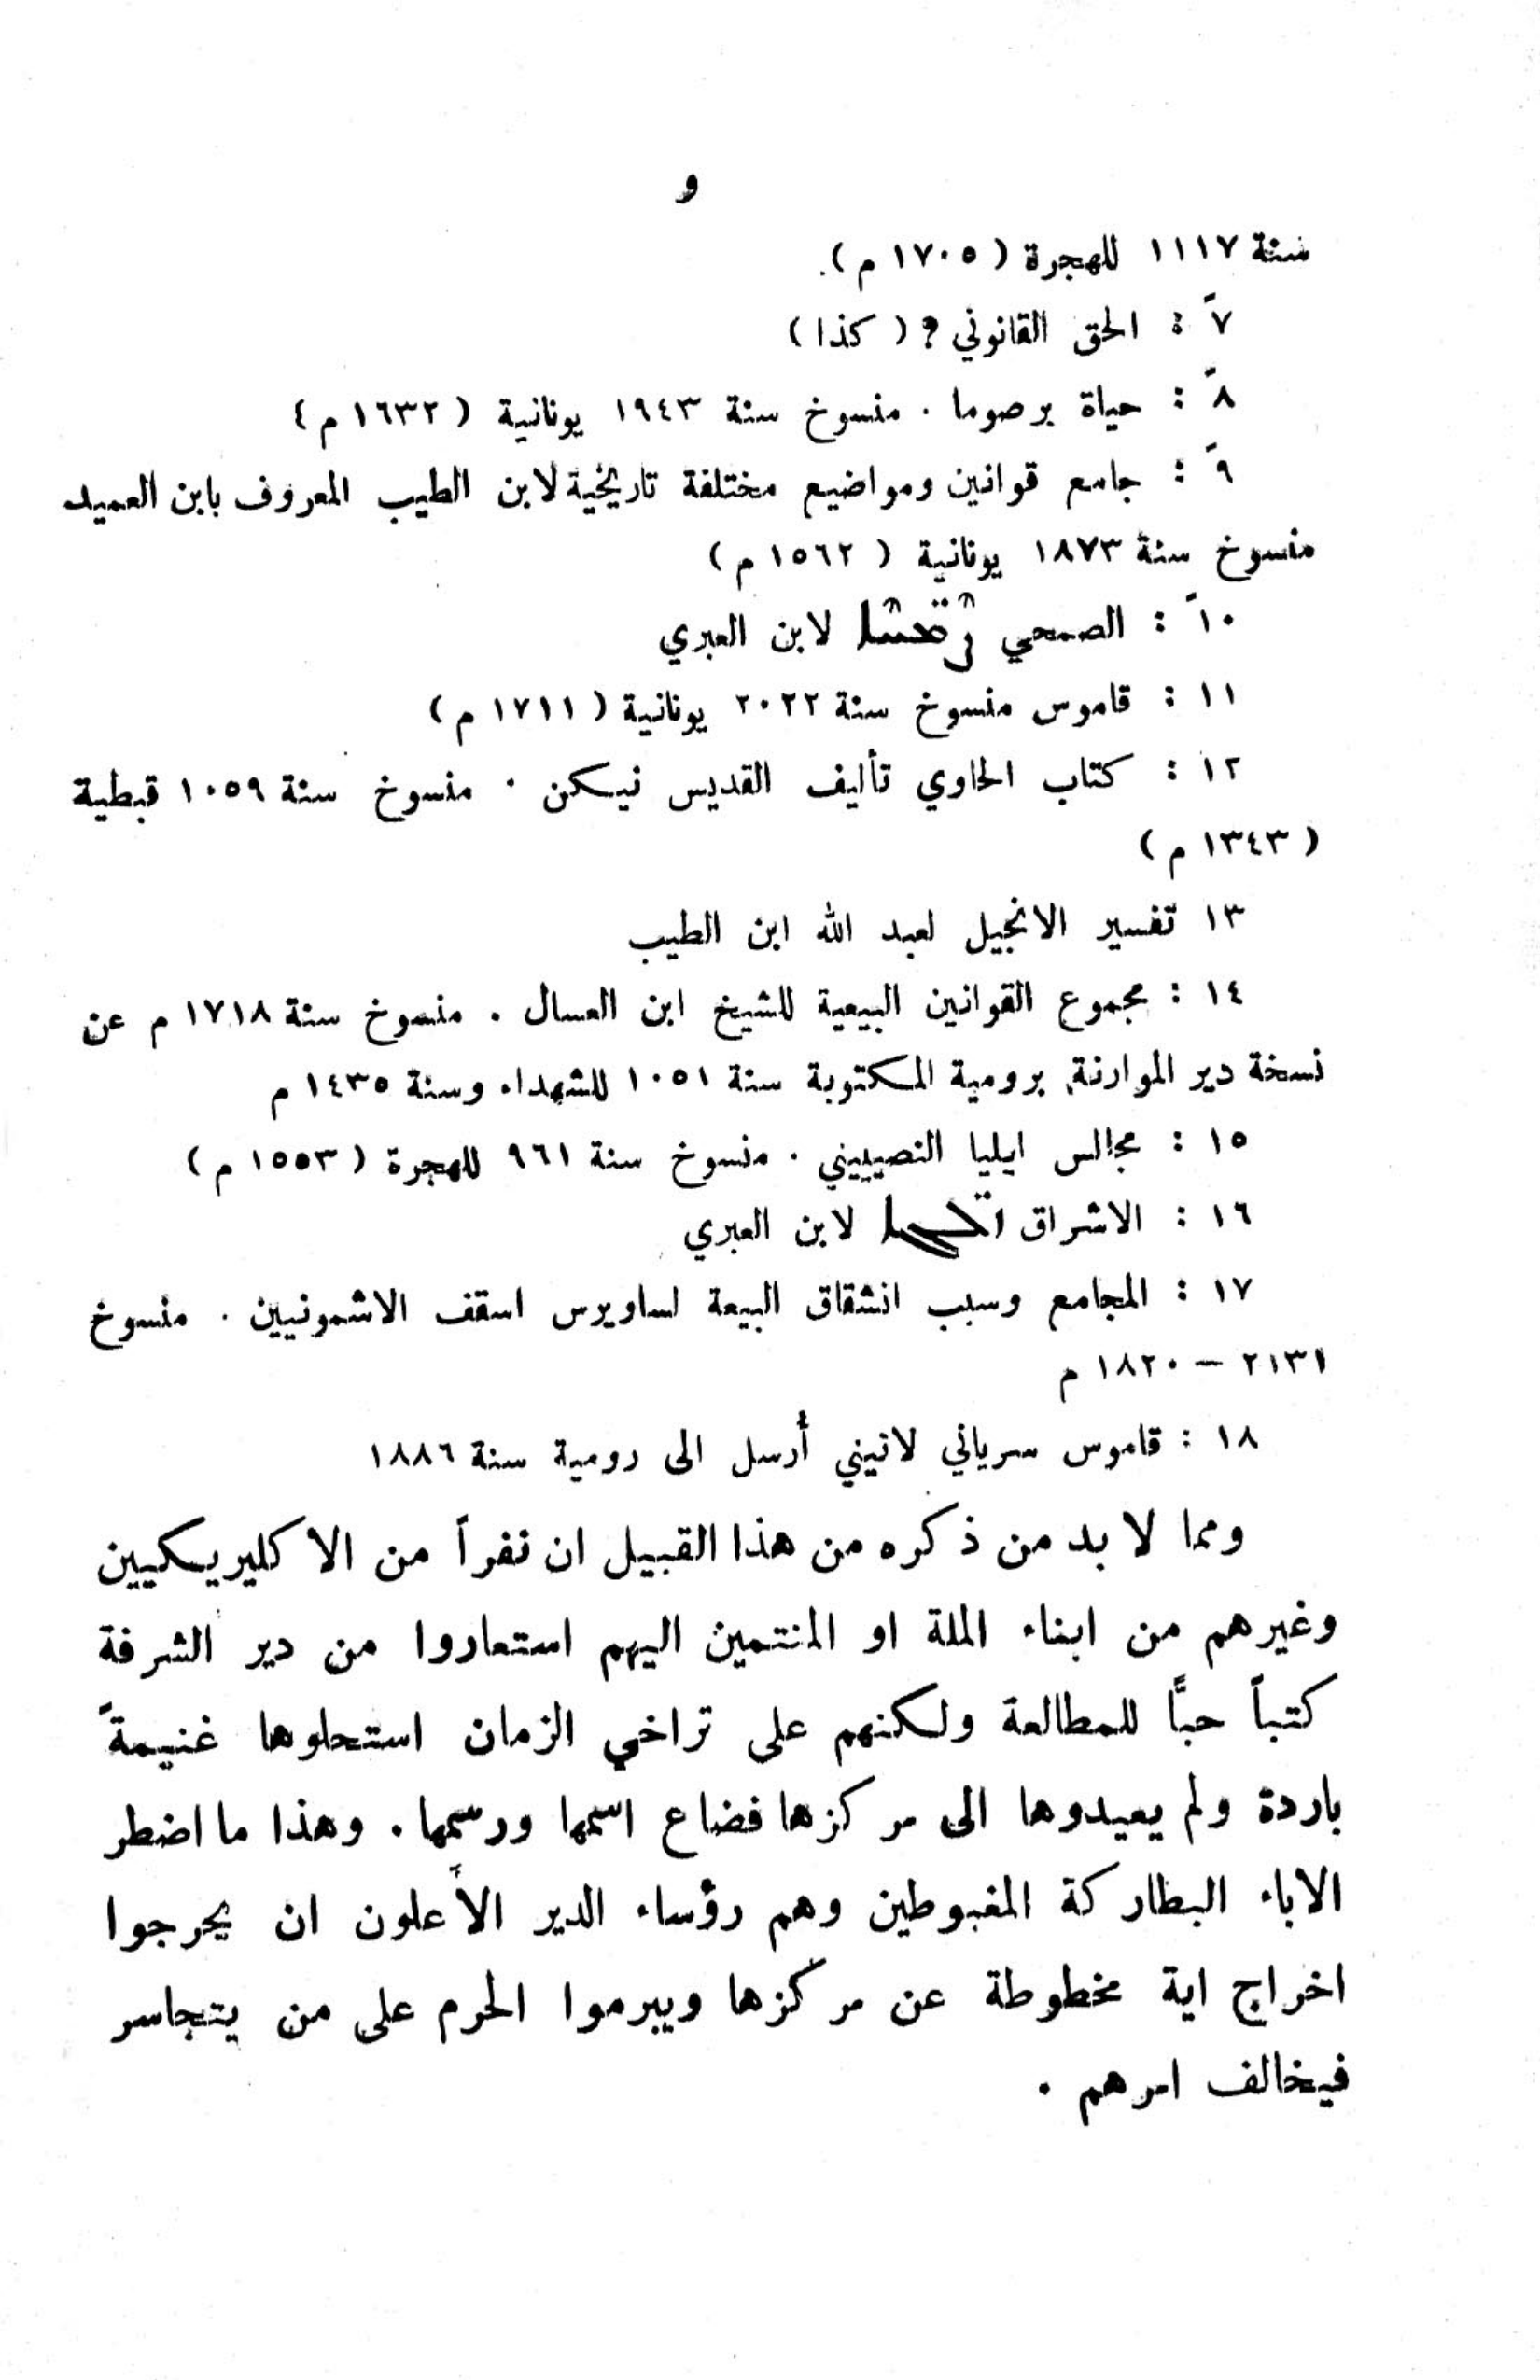 و
سنة ١١١٧ للهجرة (١٧٠٥ م).
٧ً : الحق القانوني ? (كذا)
٨ً : حياة برصوما . منسوخ سنة ١٩٤٣ يونانية (١٦٣٢ م)
٩ً : جامع قوانين ومواضيع مختلفة تاريخية لابن الطيب المعروف بابن العميد
منسوخ سنة ١٨٧٣ يونانية (١٥٦٢ م)
١٠ً : الصمحي ܨܡ̈ܚܐ لابن العبري
١١ : قاموس منسوخ سنة ٢٠٢٢ يونانية (١٧١١ م)
١٢ : كتاب الحاوي تأليف القديس نيكن . منسوخ سنة ١٠٥٩ قبطية
(١٣٤٣ م)
١٣ تفسير الانجيل لعبد الله ابن الطيب
١٤ : مجموع القوانين البيعية للشيخ ابن العسال . منسوخ سنة ١٧١٨ م عن
نسخة دير الموارنة برومية المكتوبة سنة ١٠٥١ للشهداء وسنة ١٤٣٥ م
١٥ : مجالس ايليا النصيبيني . منسوخ سنة ٩٦١ للهجرة (١٥٥٣ م)
١٦ : الاشراق لابن العبري
١٧ : المجامع وسبب انشقاق البيعة لساويرس اسقف الاشمونيين . منسوخ
٢١٣١ – ١٨٢٠ م
١٨ : قاموس سرياني لاتيني أرسل الى رومية سنة ١٨٨٦
ومما لا بد من ذكره من هذا القبيل ان نفراً من الاكليريكيين
وغيرهم من ابناء الملة او المنتمين اليهم استعاروا من دير الشرفة
كتباً حبًّا للمطالعة ولكنهم على تراخي الزمان استحلوها غنيمةً
باردة ولم يعيدوها الى مركزها فضاع اسمها ورسمها. وهذا ما اضطر
الاباء البطاركة المغبوطين وهم رؤساء الدير الأعلون ان يحرجوا
اخراج اية مخطوطة عن مركزها ويبرموا الحرم على من يتجاسر
فيخالف امرهم .